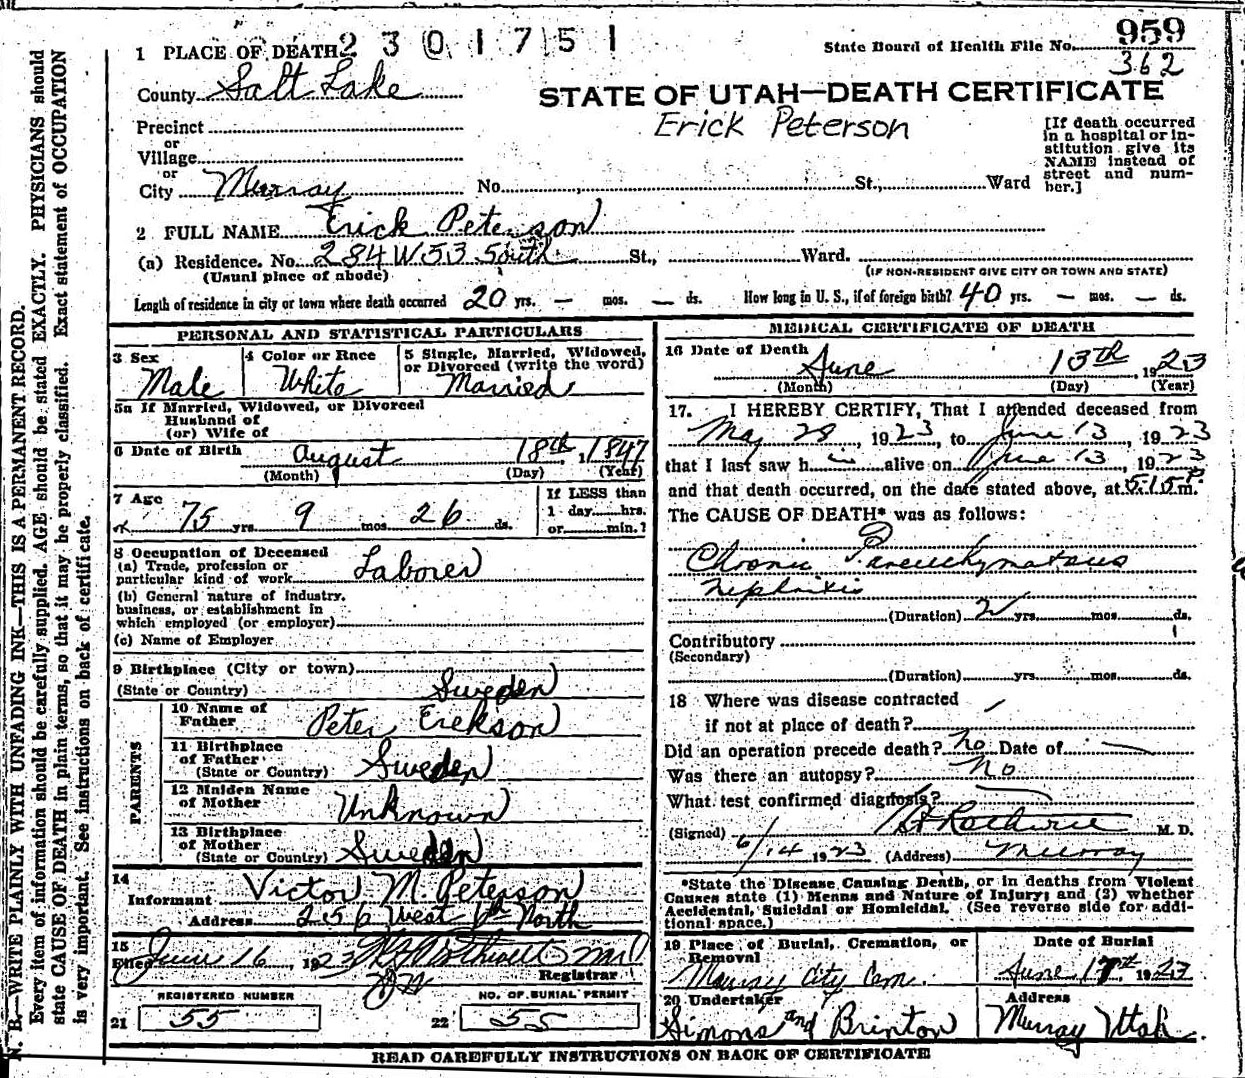 1 PLACE OF DEATH 2 3 0 1 7 5 1
State Board of Health File No. 959
362
County Salt Lake
STATE OF UTAH—DEATH CERTIFICATE
Erick Peterson
Precinct
or
Village
or
City Murray No. St., Ward
[If death occurred
in a hospital or in-
stitution give its
NAME instead of
street and num-
ber.]
2 FULL NAME Erick Peterson
(a) Residence. No. 284 W 53 South St., Ward.
(Usual place of abode)
(IF NON-RESIDENT GIVE CITY OR TOWN AND STATE)
Length of residence in city or town where death occurred 20 yrs. — mos. — ds. How long in U. S., if of foreign birth? 40 yrs. — mos. — ds.
PERSONAL AND STATISTICAL PARTICULARS
3 Sex
Male
4 Color or Race
White
5 Single, Married, Widowed,
or Divorced (write the word)
Married
5a If Married, Widowed, or Divorced
Husband of
(or) Wife of
6 Date of Birth August 18th, 1847
(Month) (Day) (Year)
7 Age
75 yrs. 9 mos. 26 ds.
If LESS than
1 day hrs.
or min.?
8 Occupation of Deceased
(a) Trade, profession or
particular kind of work Laborer
(b) General nature of industry,
business, or establishment in
which employed (or employer)
(c) Name of Employer
9 Birthplace (City or town)
(State or Country) Sweden
PARENTS
10 Name of
Father Peter Erekson
11 Birthplace
of Father
(State or Country) Sweden
12 Maiden Name
of Mother Unknown
13 Birthplace
of Mother
(State or Country) Sweden
14
Informant Victor M. Peterson
Address 256 West 6th North
15
Filed June 16, 1923
Registrar
REGISTERED NUMBER
21 55
NO. OF BURIAL PERMIT
22 55
MEDICAL CERTIFICATE OF DEATH
16 Date of Death
June 13th, 1923
(Month) (Day) (Year)
17. I HEREBY CERTIFY, That I attended deceased from
May 28, 1923, to June 13, 1923
that I last saw h im alive on June 13, 1923
and that death occurred, on the date stated above, at 5:15 P m.
The CAUSE OF DEATH* was as follows:
Chronic Parenchymatous
Nephritis
(Duration) 2 yrs. mos. ds.
Contributory
(Secondary)
(Duration) yrs. mos. ds.
18 Where was disease contracted
if not at place of death?
Did an operation precede death? No Date of
Was there an autopsy? No
What test confirmed diagnosis?
(Signed) M. D.
6/14 1923 (Address) Murray
*State the Disease Causing Death, or in deaths from Violent
Causes state (1) Means and Nature of Injury; and (2) whether
Accidental, Suicidal or Homicidal. (See reverse side for addi-
tional space.)
19 Place of Burial, Cremation, or
Removal
Murray City Cem.
Date of Burial
June 17th 1923
20 Undertaker
Simons and Brinton
Address
Murray Utah
READ CAREFULLY INSTRUCTIONS ON BACK OF CERTIFICATE
N. B.—WRITE PLAINLY WITH UNFADING INK—THIS IS A PERMANENT RECORD.
Every item of information should be carefully supplied. AGE should be stated EXACTLY. PHYSICIANS should
state CAUSE OF DEATH in plain terms, so that it may be properly classified. Exact statement of OCCUPATION
is very important. See instructions on back of certificate.